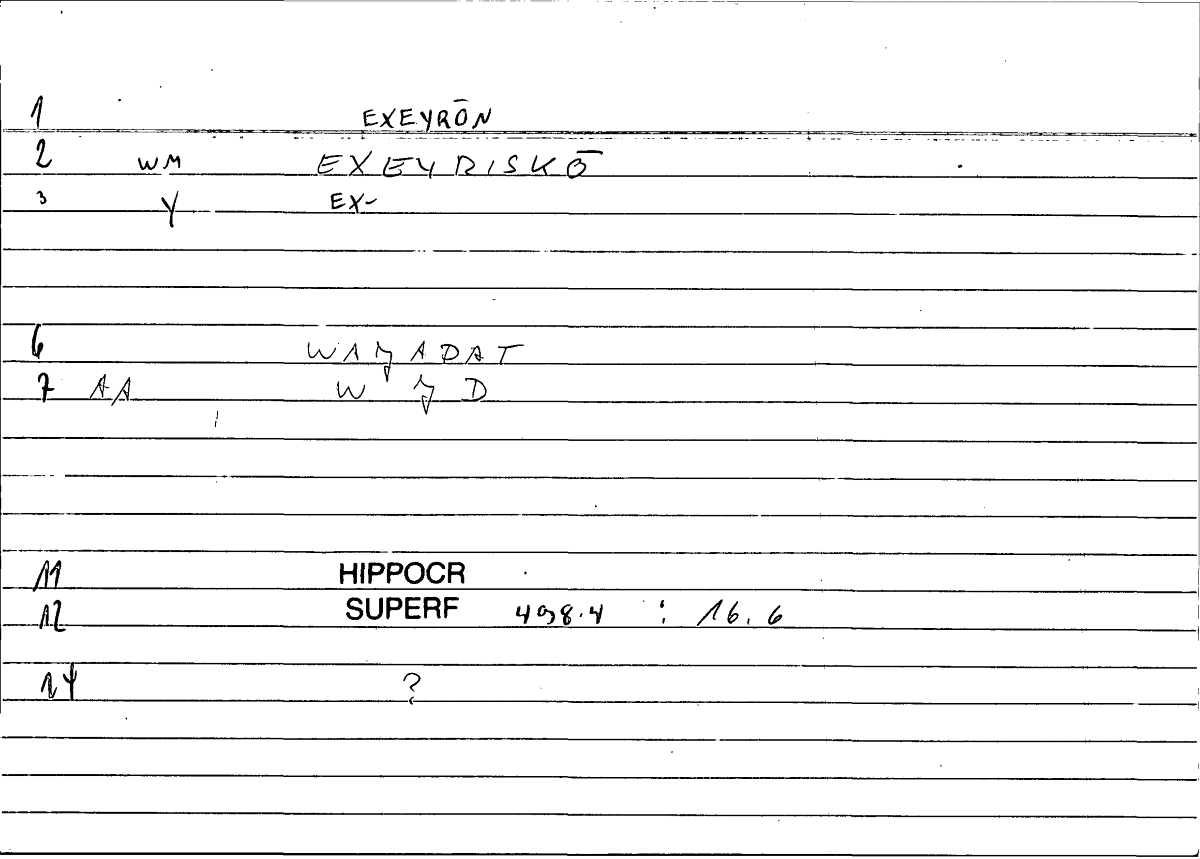 1 EXEYRŌN
2 WM EXEYRISKŌ
3 Y EX-
6 WAɈADAT
7 AA W Ɉ D
11 HIPPOCR
12 SUPERF 498.4 : 16.6
14 ?